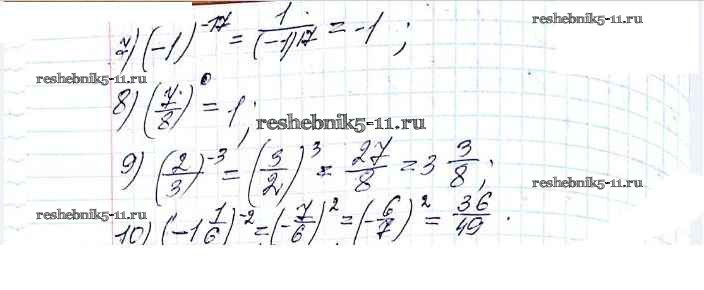 7) (-1)^-17 = 1/(-1)17 = -1 ;
reshebnik5-11.ru
reshebnik5-11.ru
reshebnik5-11.ru
8) (7/8)^0 = 1 ;
reshebnik5-11.ru
9) (2/3)^-3 = (3/2)^3 = 27/8 = 3 3/8 ;
reshebnik5-11.ru
reshebnik5-11.ru
10) (-1 1/6)^-2 = (-7/6)^2 = (-6/7)^2 = 36/49 .